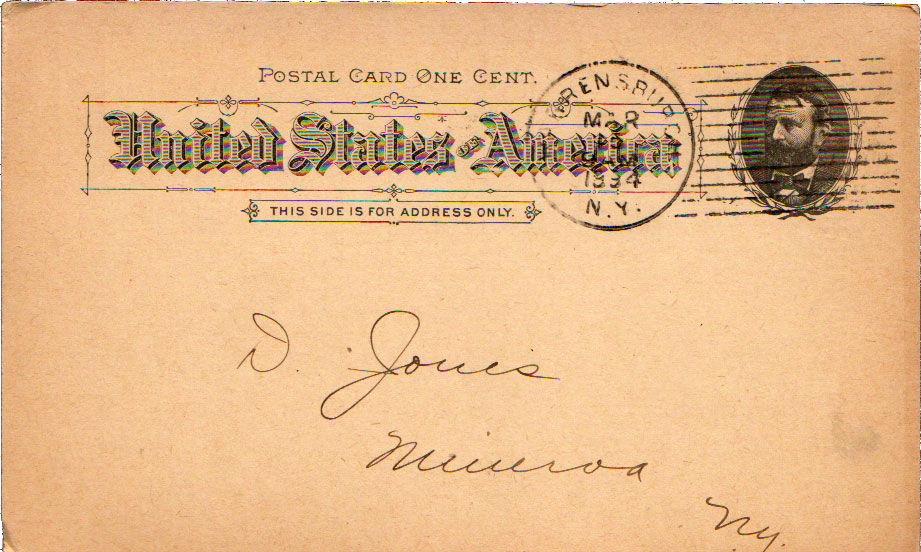 POSTAL CARD ONE CENT.
United States of America
THIS SIDE IS FOR ADDRESS ONLY.
MAR
1894
N.Y.
D. Jones
Minerva
Ny.